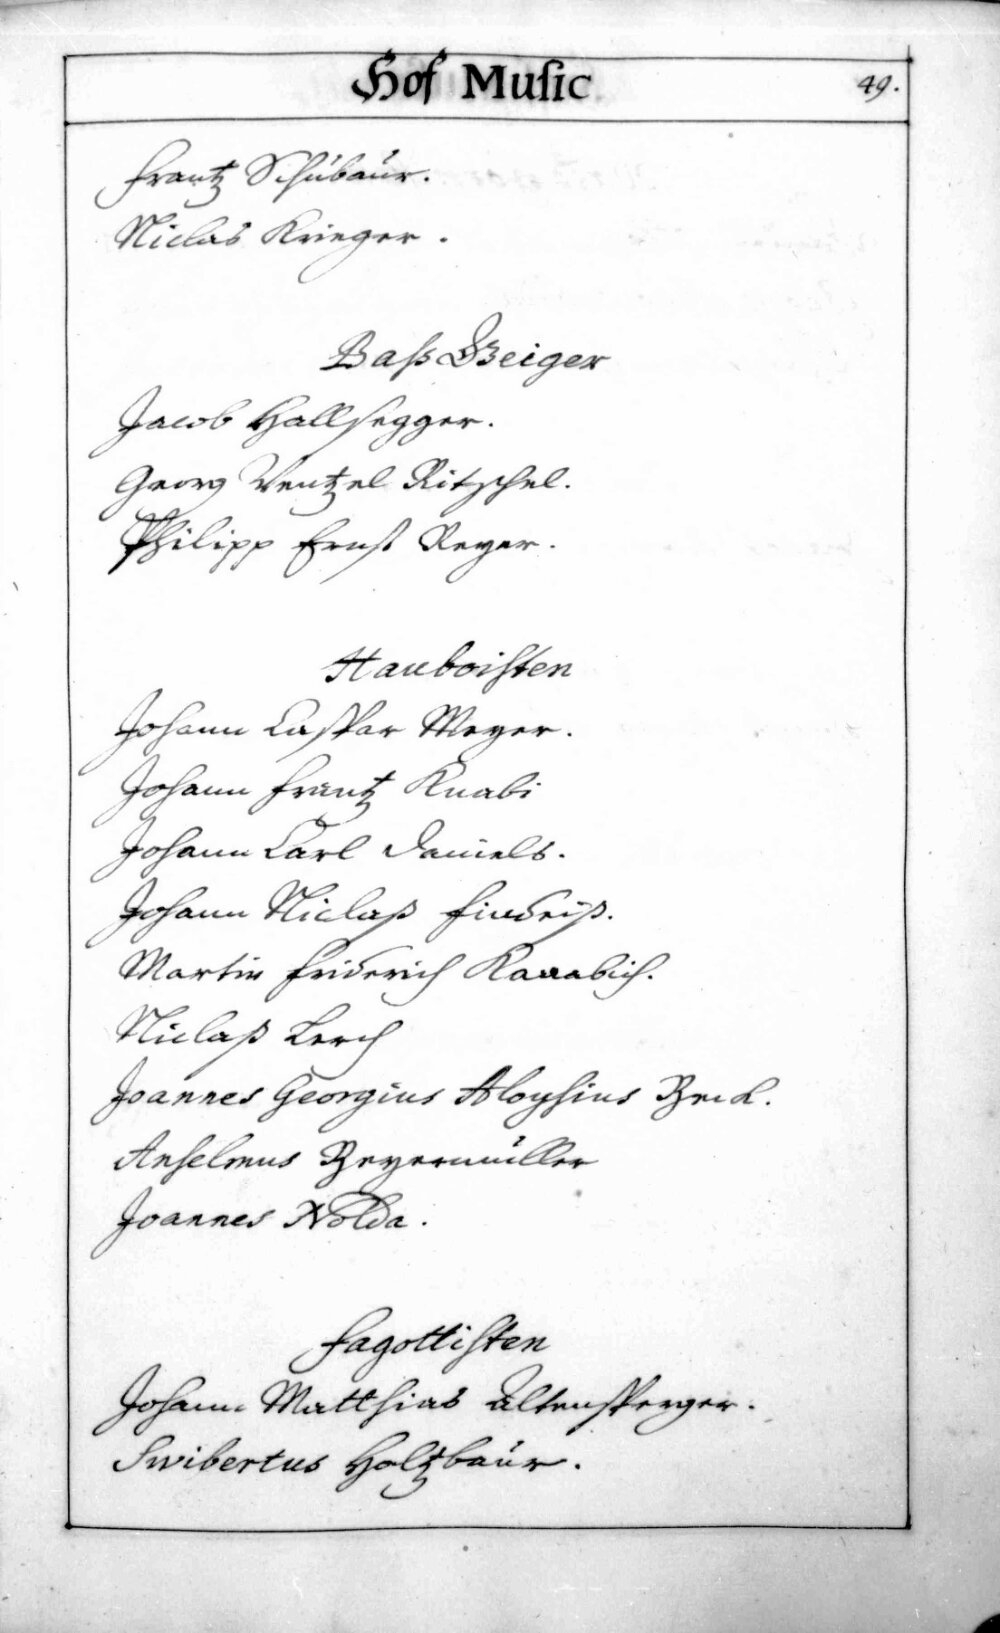 Hof Music
49.
Frantz Schübaur.
Niclas Krieger.
Baß Geiger
Jacob Hallsegger.
Georg Wentzel Ritschel.
Philipp Ernst Reyer.
Hauboisten
Johann Caspar Meyer.
Johann Frantz Knabi
Johann Carl Daniels.
Johann Niclaß Findeiß.
Martin Friderich Kannabich.
Niclaß Lerch
Joannes Georgius Aloysius Beck.
Anselmus Beyermüller
Joannes Nolda.
Fagottisten
Johann Matthias Altensperger.
Swibertus Holtzbaur.